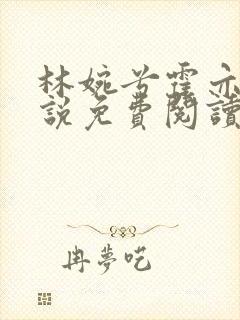 林婉兮霍亦
說免費閱讀
冉夢呓